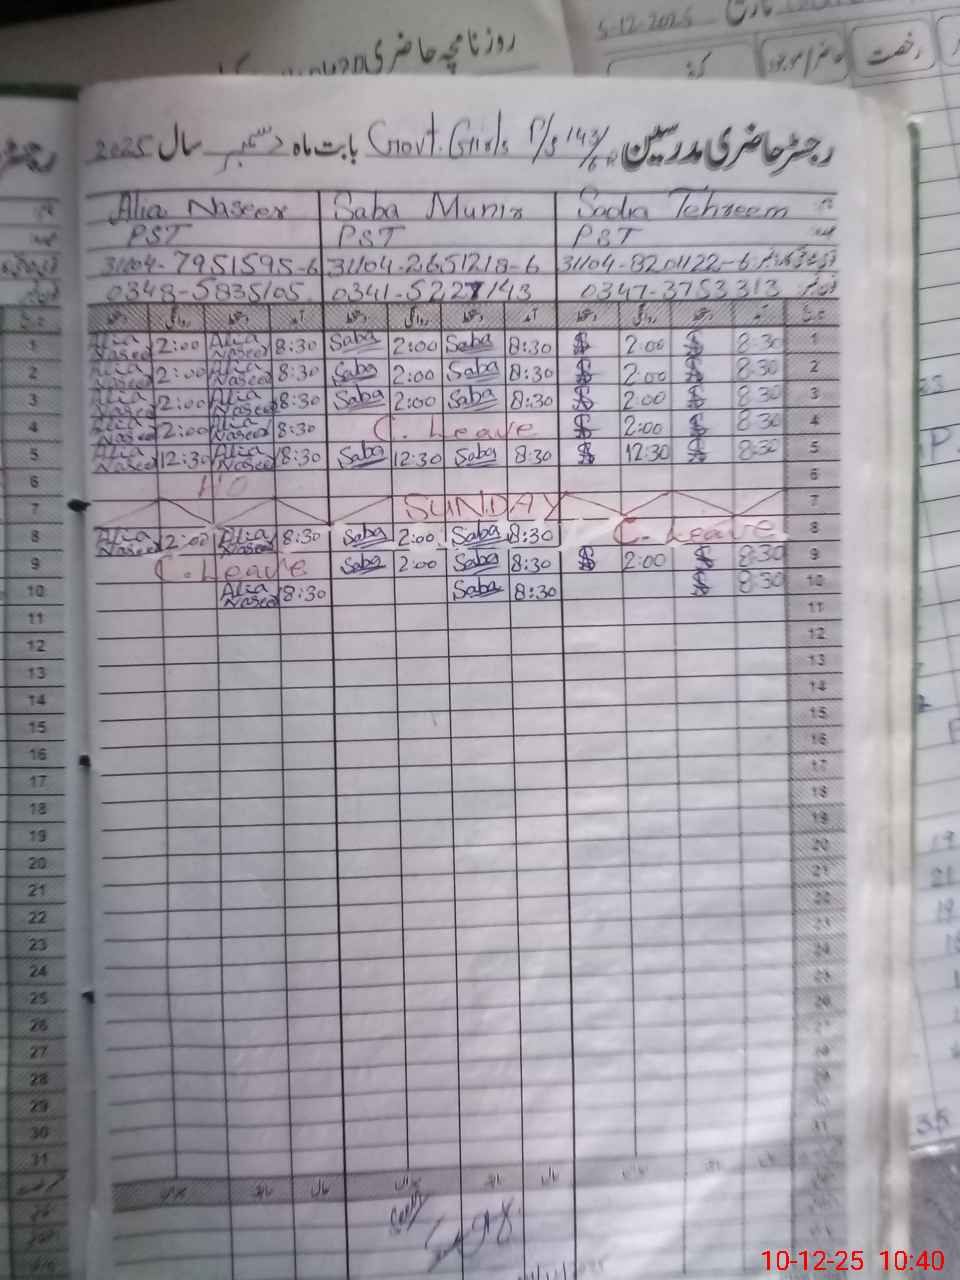 روزنامچہ حاضری
5-12-2025
حاضر/موجود رخصت
رجسٹر حاضری مدرسین Govt. Girls P/S 143/6R بابت ماہ دسمبر سال 2025
Alia Naseer Saba Munir Sadia Tehreem نام
PST PST PST عہدہ
31104-7951595-6 31104-2651218-6 31104-8201122-6
0348-5835105 0341-5227143 0347-3753313 فون نمبر
دستخط روانگی دستخط آمد دستخط روانگی دستخط آمد دستخط روانگی دستخط آمد تاریخ
1 Alia Naseer 2:00 Alia Naseer 8:30 Saba 2:00 Saba 8:30 2:00 8:30 1
2 Alia Naseer 2:00 Alia Naseer 8:30 Saba 2:00 Saba 8:30 2:00 8:30 2
3 Alia Naseer 2:00 Alia Naseer 8:30 Saba 2:00 Saba 8:30 2:00 8:30 3
4 Alia Naseer 2:00 Alia Naseer 8:30 C. Leave 2:00 8:30 4
5 Alia Naseer 12:30 Alia Naseer 8:30 Saba 12:30 Saba 8:30 12:30 8:30 5
6 6
7 SUNDAY 7
8 Alia Naseer 2:00 Alia Naseer 8:30 Saba 2:00 Saba 8:30 C. Leave 8
9 C. Leave Saba 2:00 Saba 8:30 2:00 8:30 9
10 Alia Naseer 8:30 Saba 8:30 8:30 10
11 11
12 12
13 13
14 14
15 15
16 16
17 17
18 18
19 19
20 20
21 21
22 22
23 23
24 24
25 25
26 26
27
28
29
30
31
میزان سابقہ حال میزان سابقہ حال میزان سابقہ حال
10-12-25 10:40